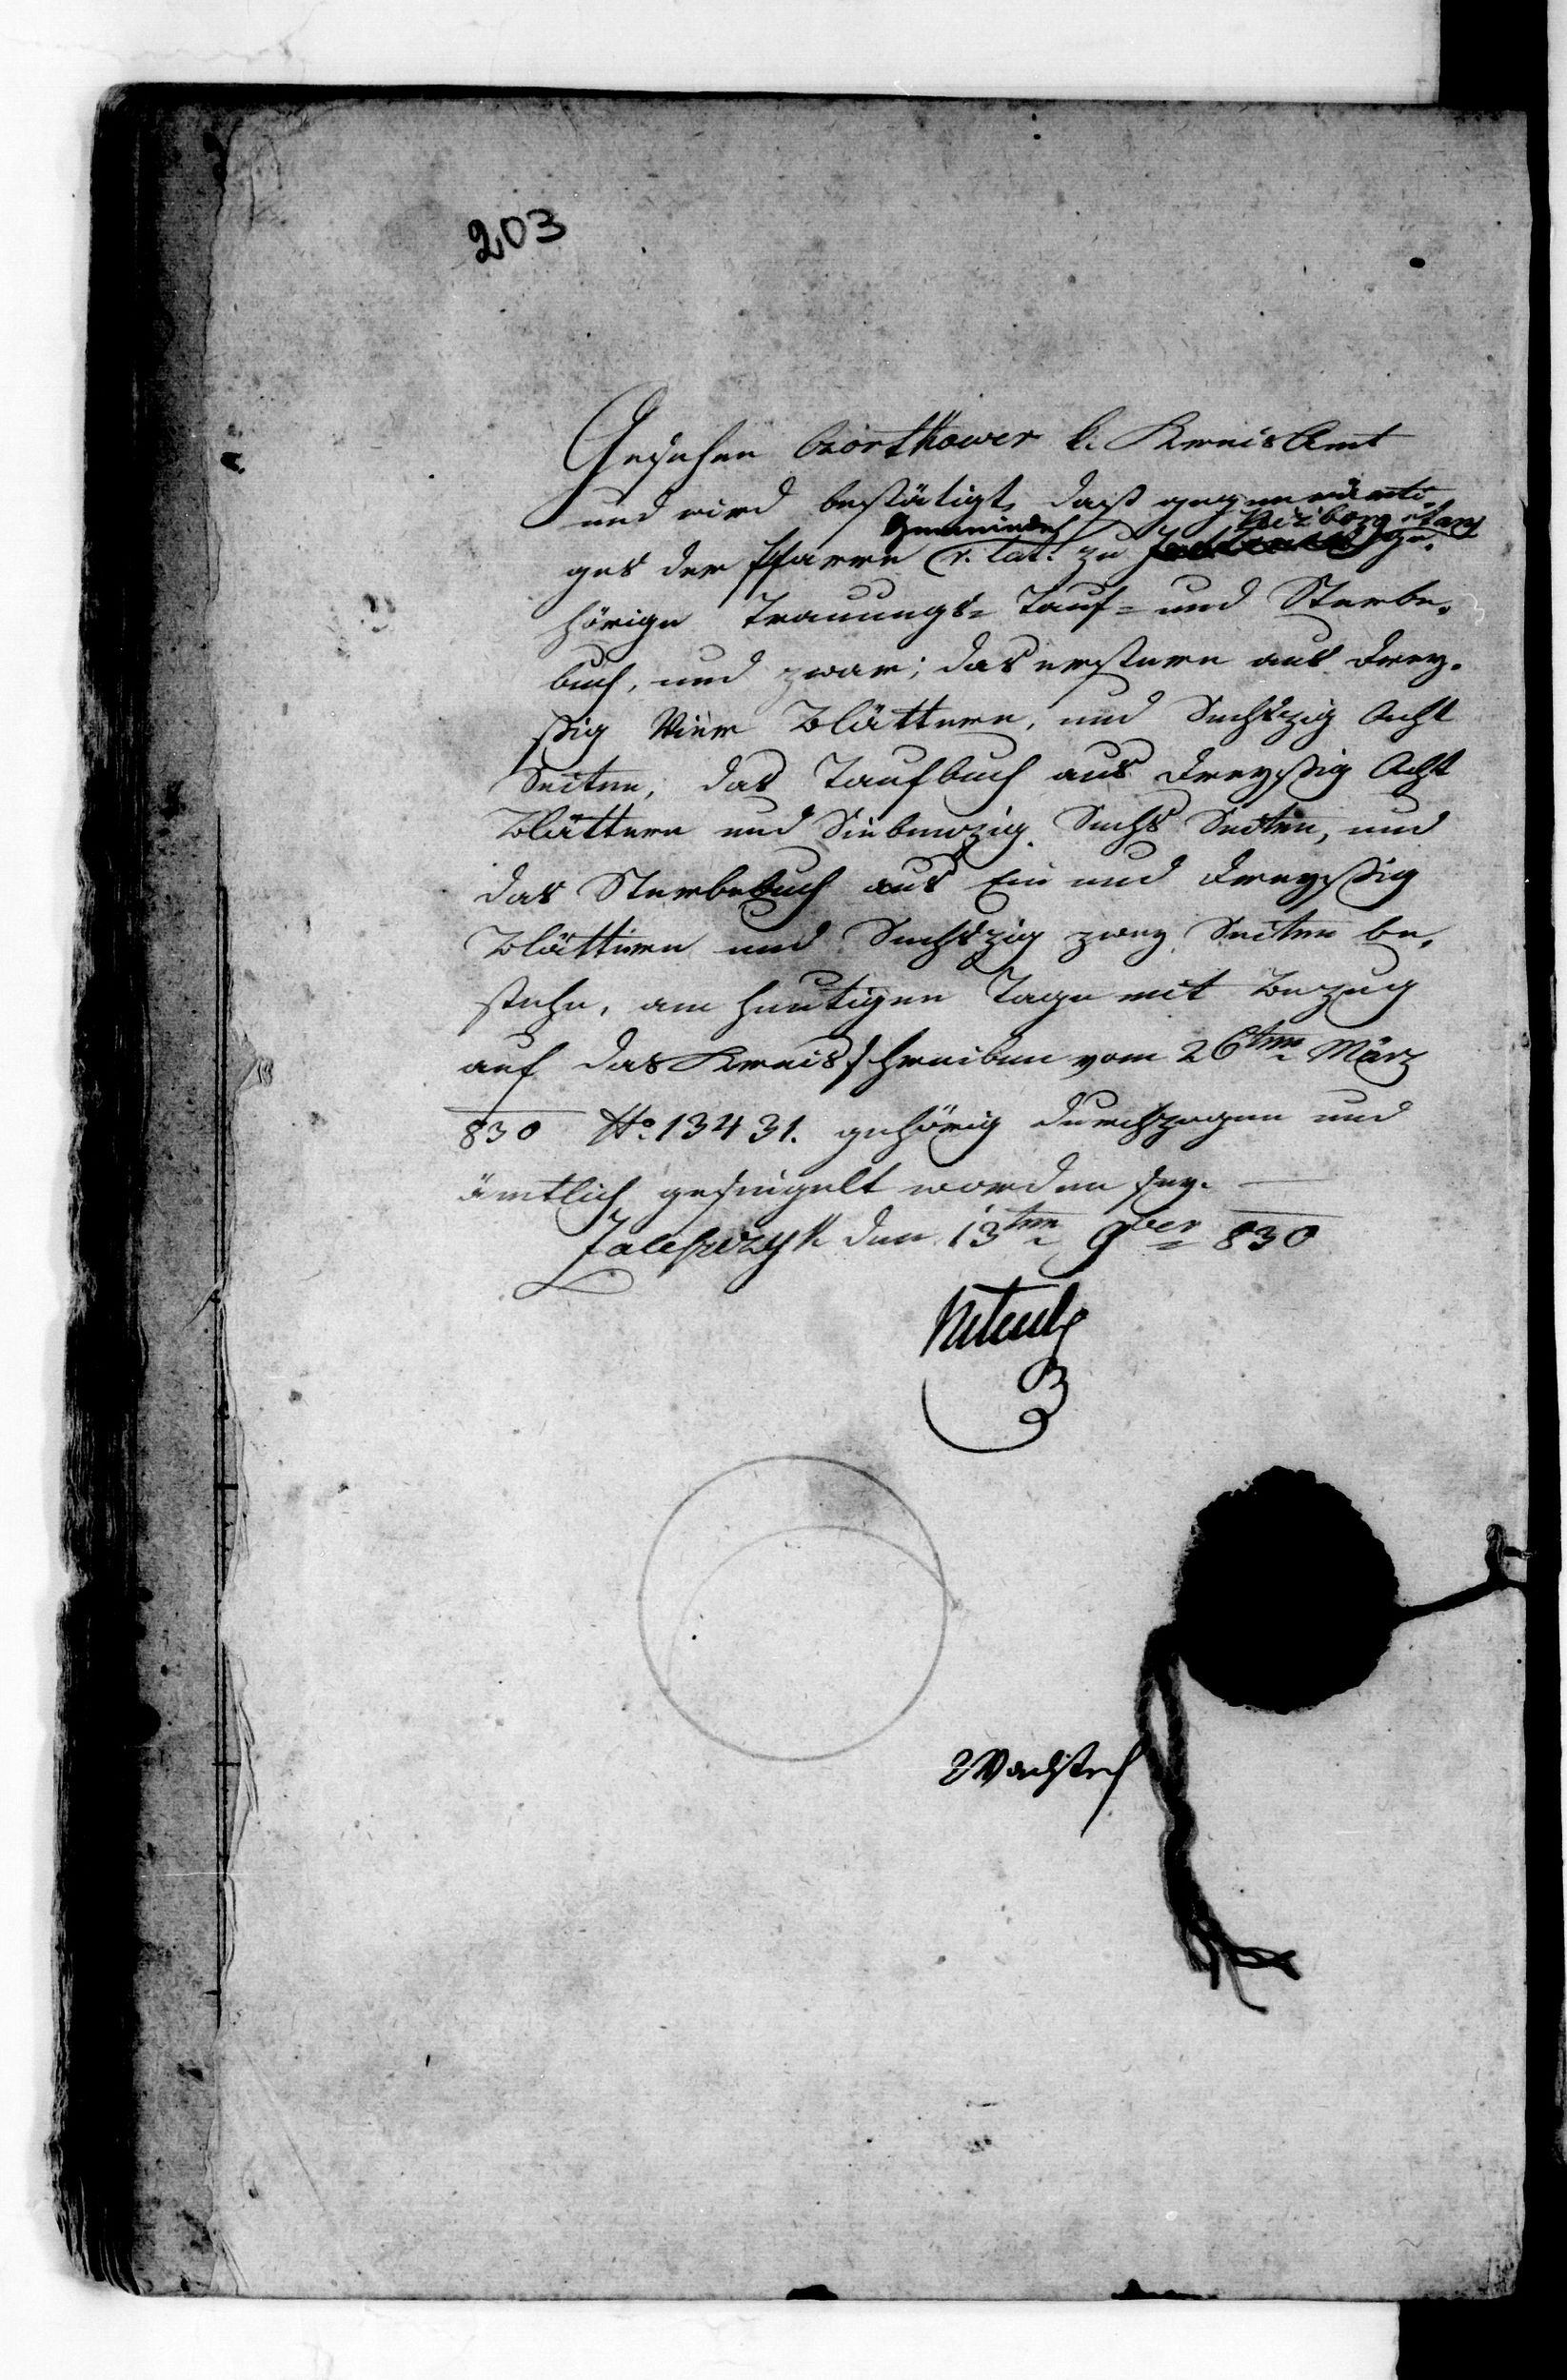 203
Gesehen Czortkower k. KreisAmt
und wird bestätigt, daß gegenwärti-
Gemeinde
ges der Pfarre r. lat. zu ge-
hörige Trauungs- Tauf- und Sterbe-
buch, und zwar; das erstere aus drey-
ßig Vier Blättern, und Sechszig Acht
Seiten, das Taufbuch aus dreyßig Acht
Blättern und Siebenzig Sechs Seiten, und
das Sterbebuch aus Ein und dreyßig
Blättern und Sechszig zwey Seiten be-
stehe, am heutigen Tage mit Bezug
auf das Kreisschreiben vom 26ten März
830 No. 13431. gehörig durchzogen und
ämtlich gesiegelt worden sey.
Zaleszczyk den 13ten 9ber 830